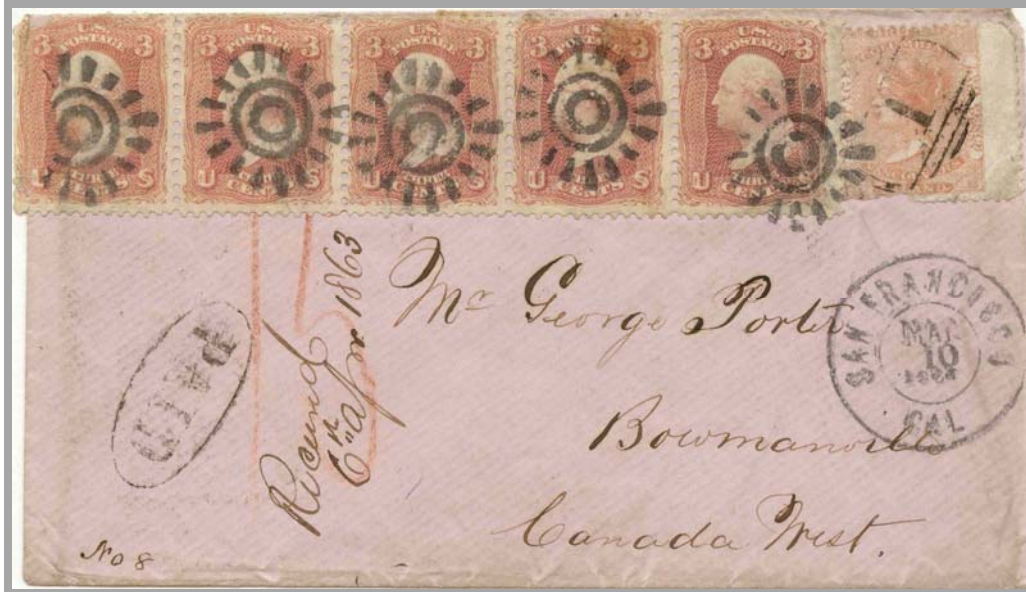 3 U.S. POSTAGE 3
U THREE CENTS S
3 U.S. POSTAGE 3
U THREE CENTS S
3 U.S. POSTAGE 3
U THREE CENTS S
3 U.S. POSTAGE 3
U THREE CENTS S
3 U.S. POSTAGE 3
U THREE CENTS S
1
Mr George Porter
Bowmanville
Canada West.
SAN FRANCISCO
MAR
10
CAL
PAID
Received
6th Apr 1863
15
No 8